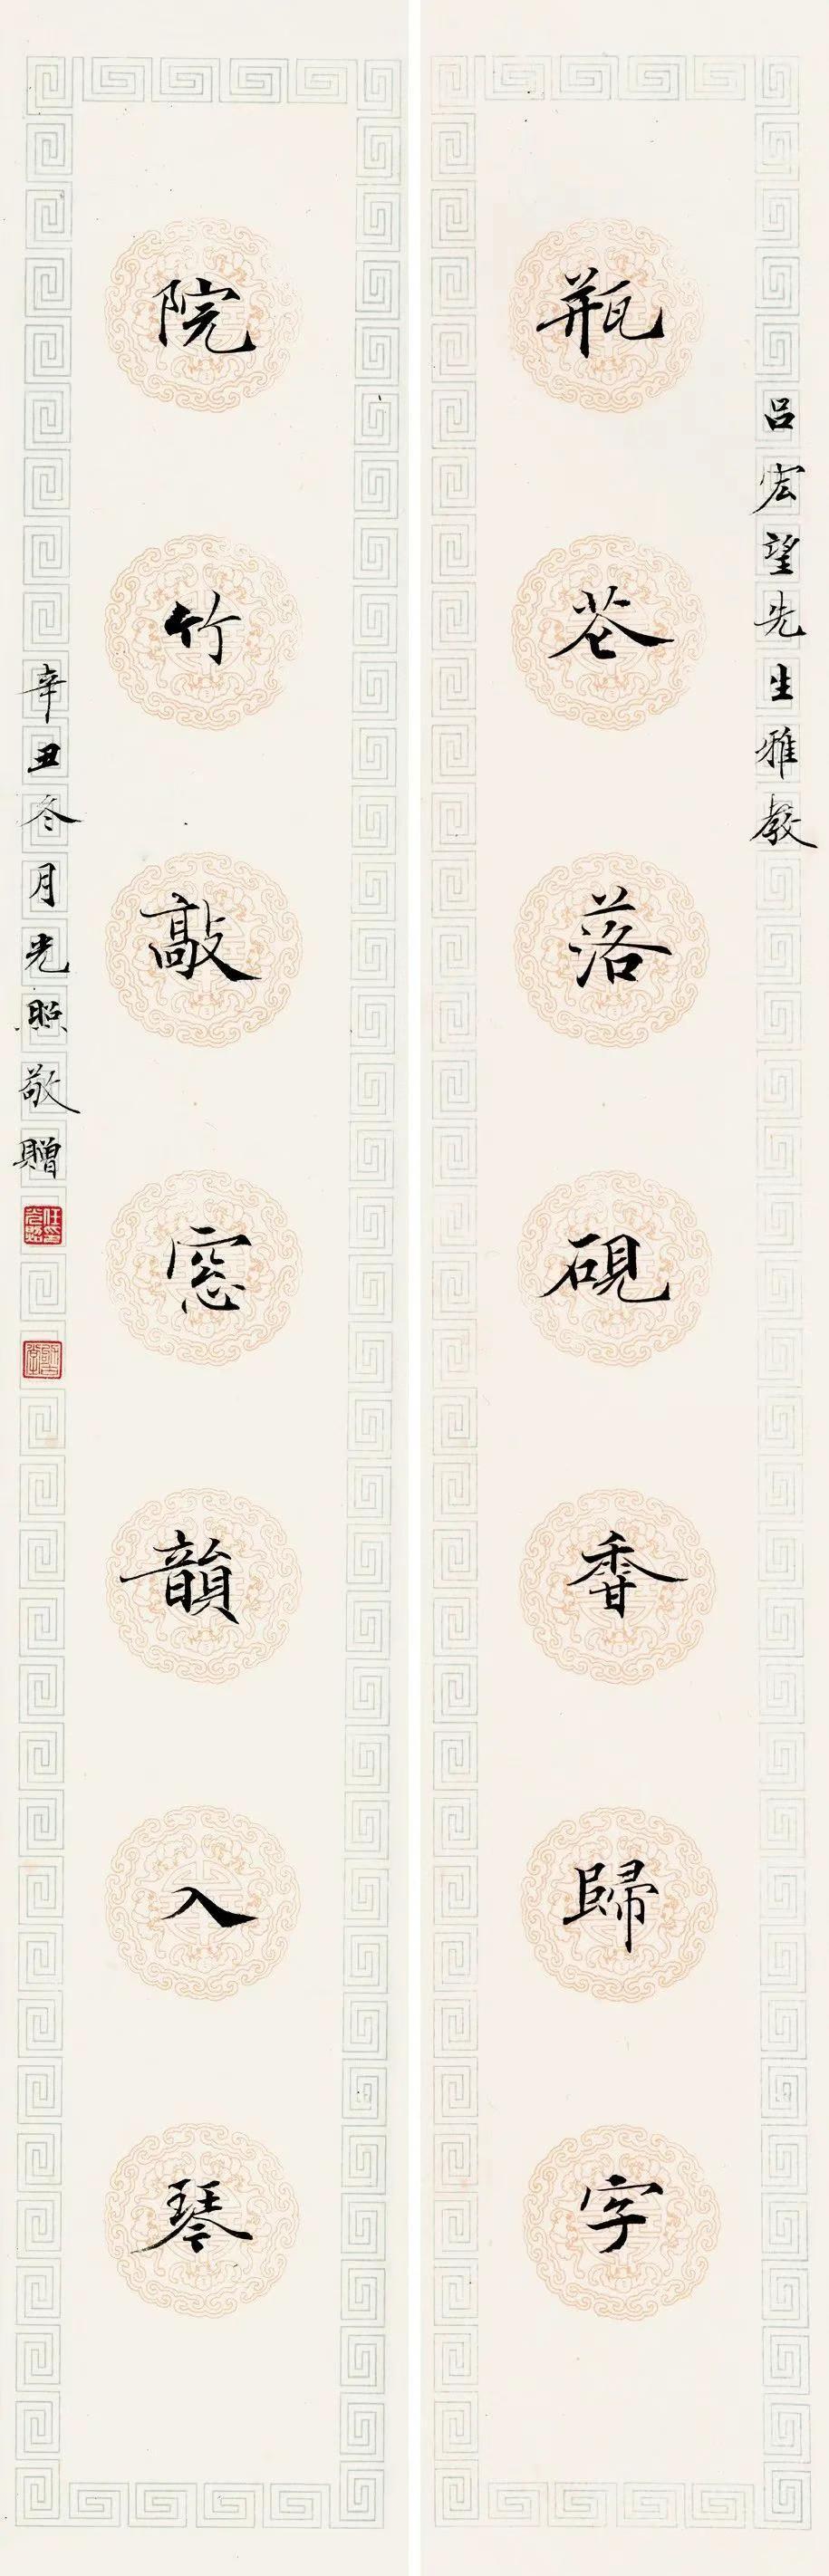 吕宏望先生雅教
瓶花落硯香歸字
院竹敲窓韻入琴
辛丑冬月光照敬贈